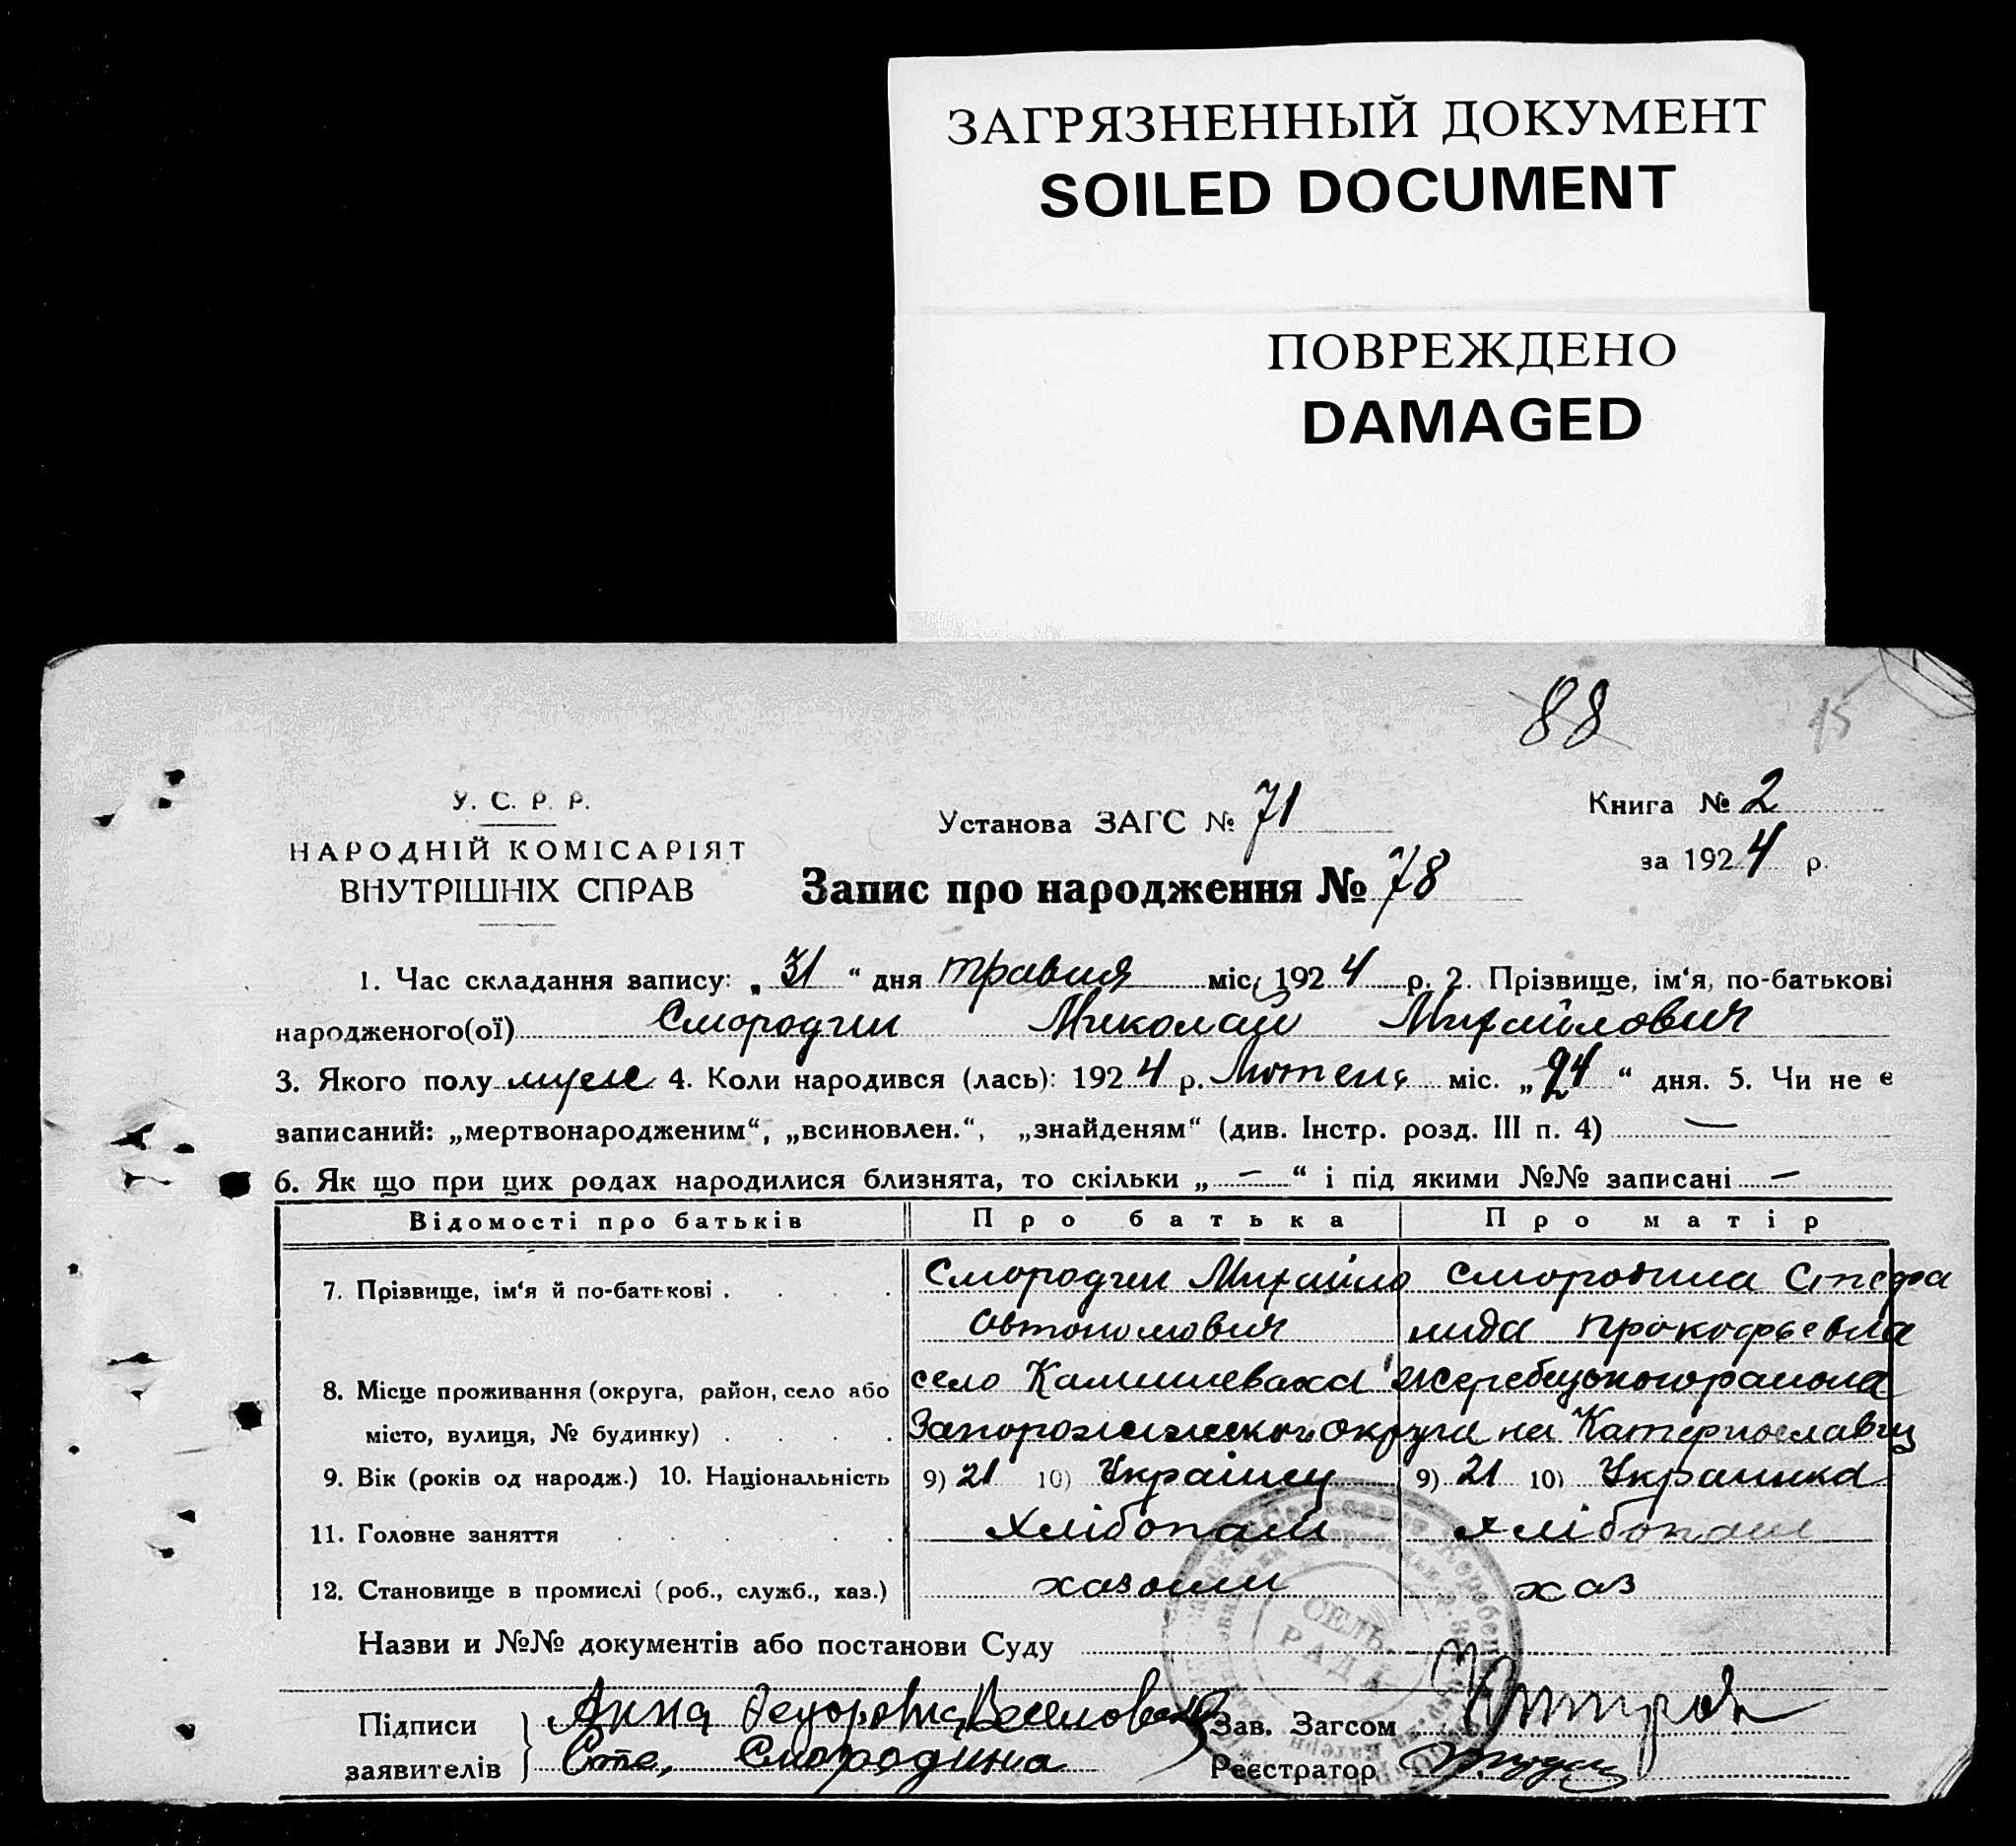 ЗАГРЯЗНЕННЫЙ ДОКУМЕНТ
SOILED DOCUMENT
ПОВРЕЖДЕНО
DAMAGED
88
15
У. С. Р. Р.
НАРОДНІЙ КОМІСАРІЯТ
ВНУТРІШНІХ СПРАВ
Установа ЗАГС № 71
Книга № 2
за 1924 р.
Запис про народження № 78
1. Час складання запису: „31“ дня травня міс. 1924 р. 2. Прізвище, ім‘я, по-батькові
народженого(ої) Смородин Миколай Михайлович
3. Якого полу муже 4. Коли народився (лась): 1924 р. Лютень міс. „24“ дня. 5. Чи не є
записаний: „мертвонародженим“, „всиновлен.“, „знайденям“ (див. Інстр. розд. III п. 4) —
6. Як що при цих родах народилися близнята, то скільки „—“ і під якими №№ записані —
Відомості про батьків Про батька Про матір
7. Прізвище, ім‘я й по-батькові Смородин Михайло Смородина Степа
Автономович нида Прокофьевна
8. Місце проживання (округа, район, село або село Камишеваха Жеребецького района
місто, вулиця, № будинку) Запорожижского округа на Катеринославщ
9. Вік (років од народж.) 10. Національність 9) 21 10) Українец 9) 21 10) Украинка
11. Головне заняття Хлібопаш хлібопаш
12. Становище в промислі (роб., служб., хаз.) хазоин хаз
Назви и №№ документів або постанови Суду
СЕЛЬ.
РАДА
Підписи Анна Федоровна Зав. Загсом
заявителів Сте, Смородина Реєстратор